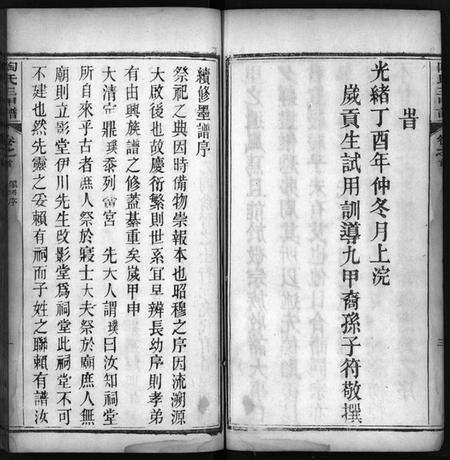 旹
光緒丁酉年仲冬月上浣
歲貢生試用訓導九甲裔孫子符敬撰
續修墨譜序
祭祀之典因時備物崇報本也昭穆之序因流溯源
大啟後也故慶衍繁則世系宜早辨長幼序則孝弟
有由興族譜之修蓋綦重矣歲甲申
大清定鼎璞忝列黌宮　先大人謂璞曰汝知祠堂
所自來乎古者庶人祭於寢士大夫祭於廟庶人無
廟則立影堂伊川先生改影堂爲祠堂此祠堂不可
不建也然先靈之妥賴有祠而子姓之聯賴有譜汝
陶氏三甲譜
卷之首